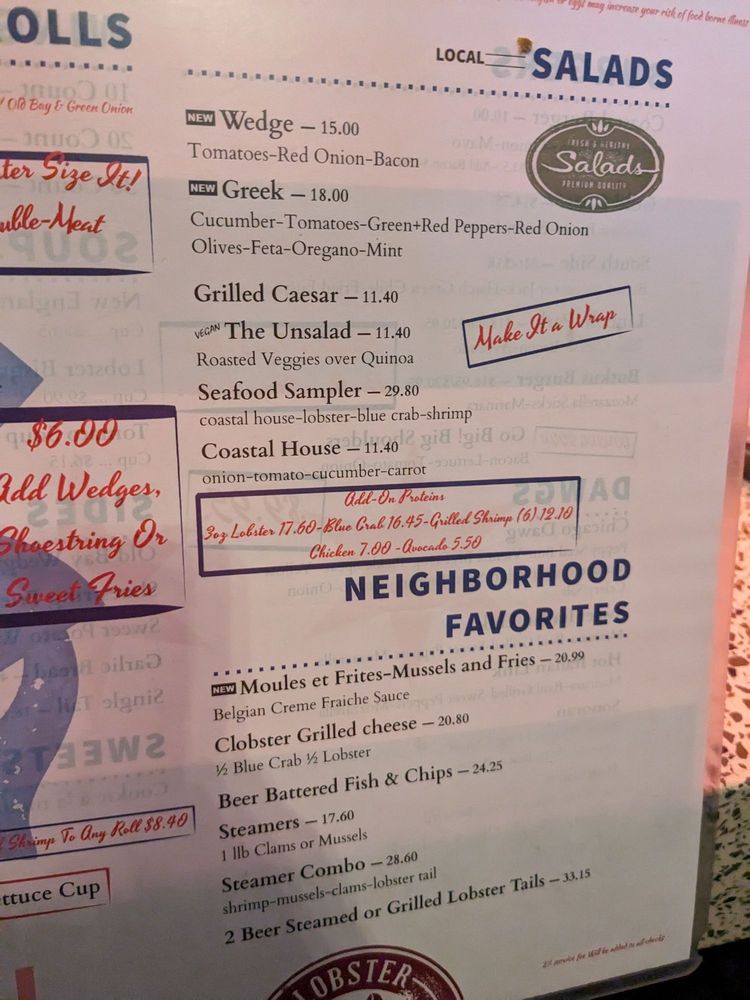 OLLS
Old Bay & Green Onion
ter Size It!
uble-Meat
$6.00
Add Wedges,
Shoestring Or
Sweet Fries
Shrimp To Any Roll $8.40
ettuce Cup
or eggs may increase your risk of food borne illness
LOCAL SALADS
FRESH & HEALTHY
Salads
PREMIUM QUALITY
NEW Wedge – 15.00
Tomatoes-Red Onion-Bacon
NEW Greek – 18.00
Cucumber-Tomatoes-Green+Red Peppers-Red Onion
Olives-Feta-Oregano-Mint
Grilled Caesar – 11.40
VEGAN The Unsalad – 11.40
Roasted Veggies over Quinoa
Make It a Wrap
Seafood Sampler – 29.80
coastal house-lobster-blue crab-shrimp
Coastal House – 11.40
onion-tomato-cucumber-carrot
Add-On Proteins
3oz Lobster 17.60-Blue Crab 16.45-Grilled Shrimp (6) 12.10
Chicken 7.00 -Avocado 5.50
NEIGHBORHOOD
FAVORITES
NEW Moules et Frites-Mussels and Fries – 20.99
Belgian Creme Fraiche Sauce
Clobster Grilled cheese – 20.80
½ Blue Crab ½ Lobster
Beer Battered Fish & Chips – 24.25
Steamers – 17.60
1 llb Clams or Mussels
Steamer Combo – 28.60
shrimp-mussels-clams-lobster tail
2 Beer Steamed or Grilled Lobster Tails – 33.15
2% service fee Will be added to all checks
LOBSTER